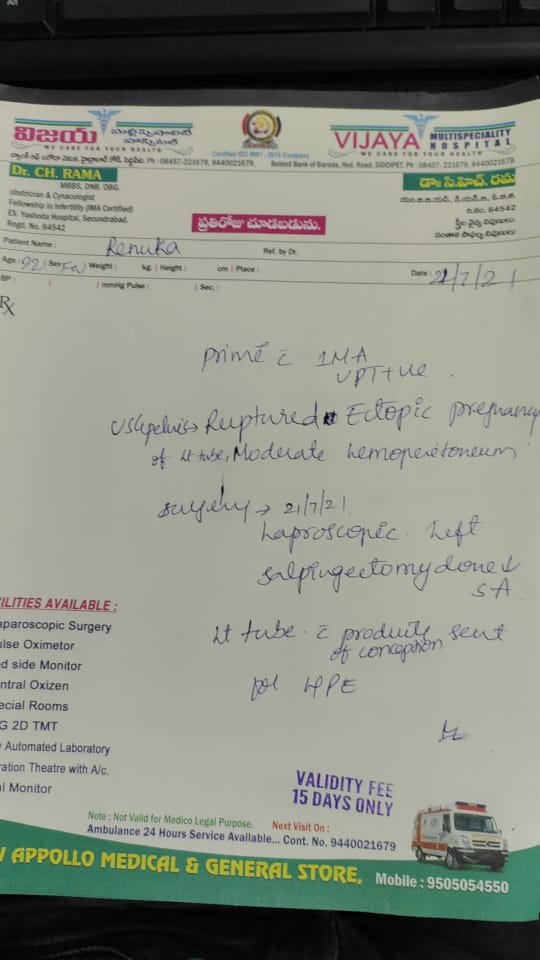 Alt
విజయ మల్టిస్పెషాలిటి హాస్పిటల్
WE CARE FOR YOUR HEALTH
Certified ISO 9001 : 2015 Company
VIJAYA MULTISPECIALITY HOSPITAL
WE CARE FOR YOUR HEALTH
Ph : 08457-221679, 9440021679
Behind Bank of Baroda, Hyd. Road, SIDDIPET. Ph : 08457-221679, 9440021679
Dr. CH. RAMA
MBBS, DNB. OBG.
obstrician & Gynacologist
Fellowship in Infertility (IMA Certified)
EX- Yashoda Hospital, Secundrabad.
Regd. No. 64542
డా॥ సి.హెచ్. రమ
ఎం.బి.బి.యస్, డి.యన్.బి, ఓ.బి.జి.
రి.నం. 64542
స్త్రీల వైద్య నిపుణులు.
సంతాన సాఫల్య నిపుణులు
ప్రతిరోజు చూడబడును.
Patient Name : Renuka Ref. by Dr.
Age : 22 Sex Fe Weight : kg. Height : cm Place : Date : 21/7/21
BP : mmHg Pulse : Sec. :
Rx
prime c̄ 1MA
UPT +ve .
USG pelvis → Ruptured Ectopic pregnancy
of Lt tube, Moderate hemoperetoneum
surgery → 21/7/21
Laproscopic Left
salpingectomy done ↓
SA
Lt tube c̄ products of conception sent
for HPE
CILITIES AVAILABLE :
aparoscopic Surgery
ulse Oximetor
d side Monitor
ntral Oxizen
ecial Rooms
G 2D TMT
y Automated Laboratory
ration Theatre with A/c.
al Monitor
VALIDITY FEE
15 DAYS ONLY
Note : Not Valid for Medico Legal Purpose. Next Visit on :
Ambulance 24 Hours Service Available... Cont. No. 9440021679
APPOLLO MEDICAL & GENERAL STORE,
Mobile : 9505054550